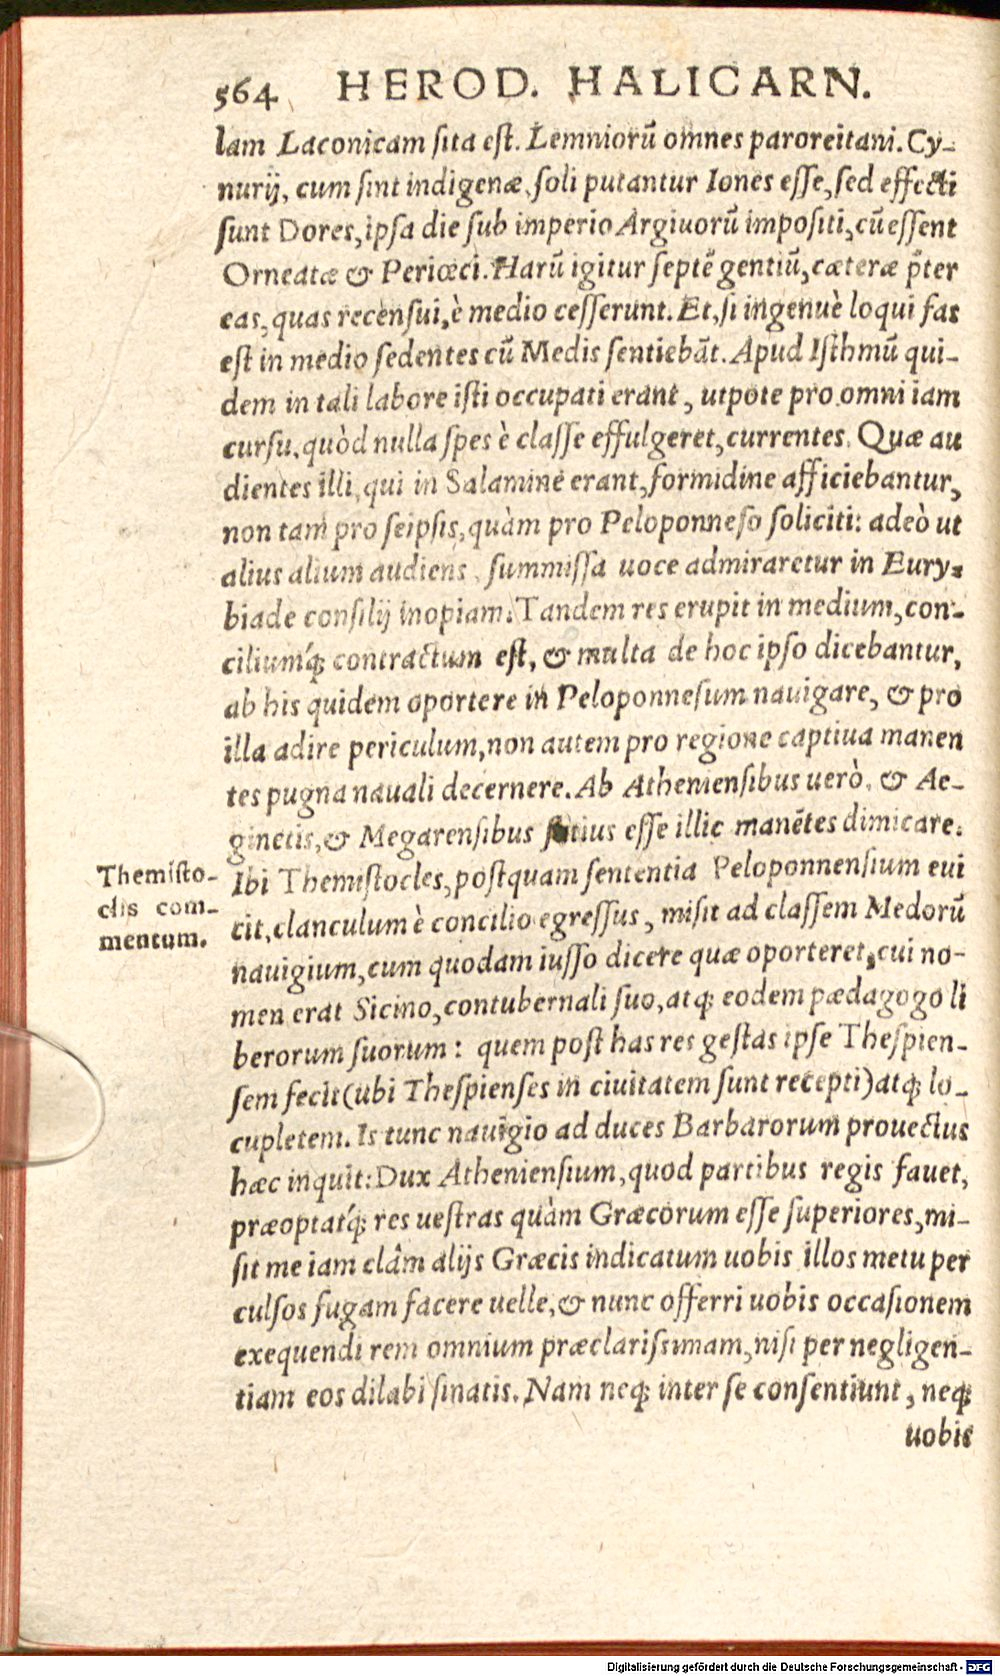 564 HEROD. HALICARN.
lam Laconicam ſita eſt. Lemniorũ omnes paroreitani. Cy-
nurij, cum ſint indigenæ, ſoli putantur Iones eſſe, ſed effecti
ſunt Dores, ipſa die ſub imperio Argiuorũ impoſiti, cũ eſſent
Orneatæ & Periœci. Harũ igitur ſeptẽ gentiũ, cæteræ p̃ter
eas, quas recenſui, è medio ceſſerunt. Et, ſi ingenuè loqui fas
eſt in medio ſedentes cũ Medis ſentiebãt. Apud Iſthmũ qui-
dem in tali labore iſti occupati erant, utpote pro omni iam
curſu, quòd nulla ſpes è claſſe effulgeret, currentes. Quæ au
dientes illi, qui in Salamine erant, formidine afficiebantur,
non tam pro ſeipſis, quàm pro Peloponneſo ſoliciti: adeò ut
alius alium audiens, ſummiſſa uoce admiraretur in Eury-
biade conſilij inopiam. Tandem res erupit in medium, con-
ciliumq́; contractum eſt, & multa de hoc ipſo dicebantur,
ab his quidem oportere in Peloponneſum nauigare, & pro
illa adire periculum, non autem pro regione captiua manen
tes pugna nauali decernere. Ab Athenienſibus uerò, & Ae-
ginetis, & Megarenſibus ſatius eſſe illic manẽtes dimicare.
Themiſto-
clis com-
mentum.
Ibi Themiſtocles, poſtquam ſententia Peloponnenſium eui
cit, clanculum è concilio egreſſus, miſit ad claſſem Medorũ
nauigium, cum quodam iuſſo dicere quæ oporteret, cui no-
men erat Sicino, contubernali ſuo, atq; eodem pædagogo li
berorum ſuorum: quem poſt has res geſtas ipſe Theſpien-
ſem fecit (ubi Theſpienſes in ciuitatem ſunt recepti) atq; lo-
cupletem. Is tunc nauigio ad duces Barbarorum prouectus
hæc inquit: Dux Athenienſium, quod partibus regis fauet,
præoptatq́; res ueſtras quàm Græcorum eſſe ſuperiores, mi-
ſit me iam clâm alijs Græcis indicatum uobis illos metu per
culſos fugam facere uelle, & nunc offerri uobis occaſionem
exequendi rem omnium præclariſsimam, niſi per negligen-
tiam eos dilabi ſinatis. Nam neq; inter ſe conſentiunt, neq;
uobis
Digitalisierung gefördert durch die Deutsche Forschungsgemeinschaft - DFG